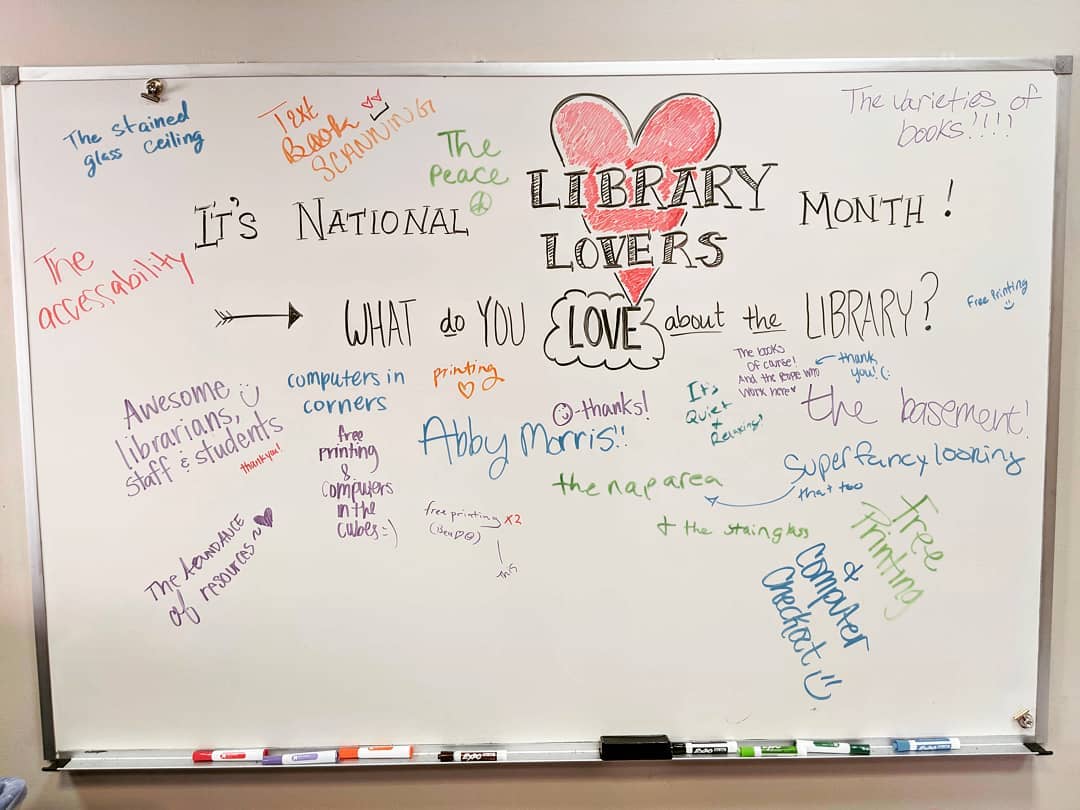 The stained
glass ceiling
Text
Book
SCANNING
The
peace
The varieties of
books!!!!
IT'S NATIONAL LIBRARY LOVERS MONTH!
The
accessability
WHAT do YOU LOVE about the LIBRARY?
Free Printing
Awesome
librarians,
staff & students
thank you!
computers in
corners
printing
free
printing
&
computers
in the
cubes =)
Abby Morris!!
-thanks!
It's
Quiet
+
Relaxing!
The books
of course!
And the people who
work here
thank
you! (:
the basement!
superfancy looking
that too
the nap area
+ the stainglass
free printing x2
The Abundance
of resources~
Free
Printing
&
Computer
Checkout
EXPO
EXPO
EXPO